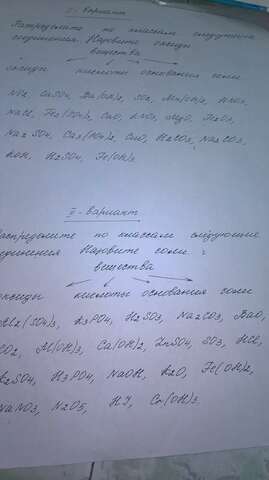 I - вариант
Распределите по классам следующие
соединения. Назовите оксиды
вещества
оксиды кислоты основания соли
NO2, CaSO4, Ba(OH)2, SO2, Mn(OH)2, HNO3,
NaCl, Fe3(PO4)2, CaO, KNO3, MgO, Fe2O3,
Na2SO4, Ca3(PO4)2, CuO, H2CO3, Na2CO3,
KOH, H2SO4, Fe(OH)3
II - вариант
аспределите по классам следующие
единения Назовите соли :
вещества
оксиды кислоты основания соли
Al2(SO4)3, K3PO4, H2SO3, Na2CO3, BaO,
CO2, Al(OH)3, Ca(OH)2, ZnSO4, SO3, HCl,
K2SO4, H3PO4, NaOH, K2O, Fe(OH)2,
NaNO3, N2O5, HJ, Cr(OH)3